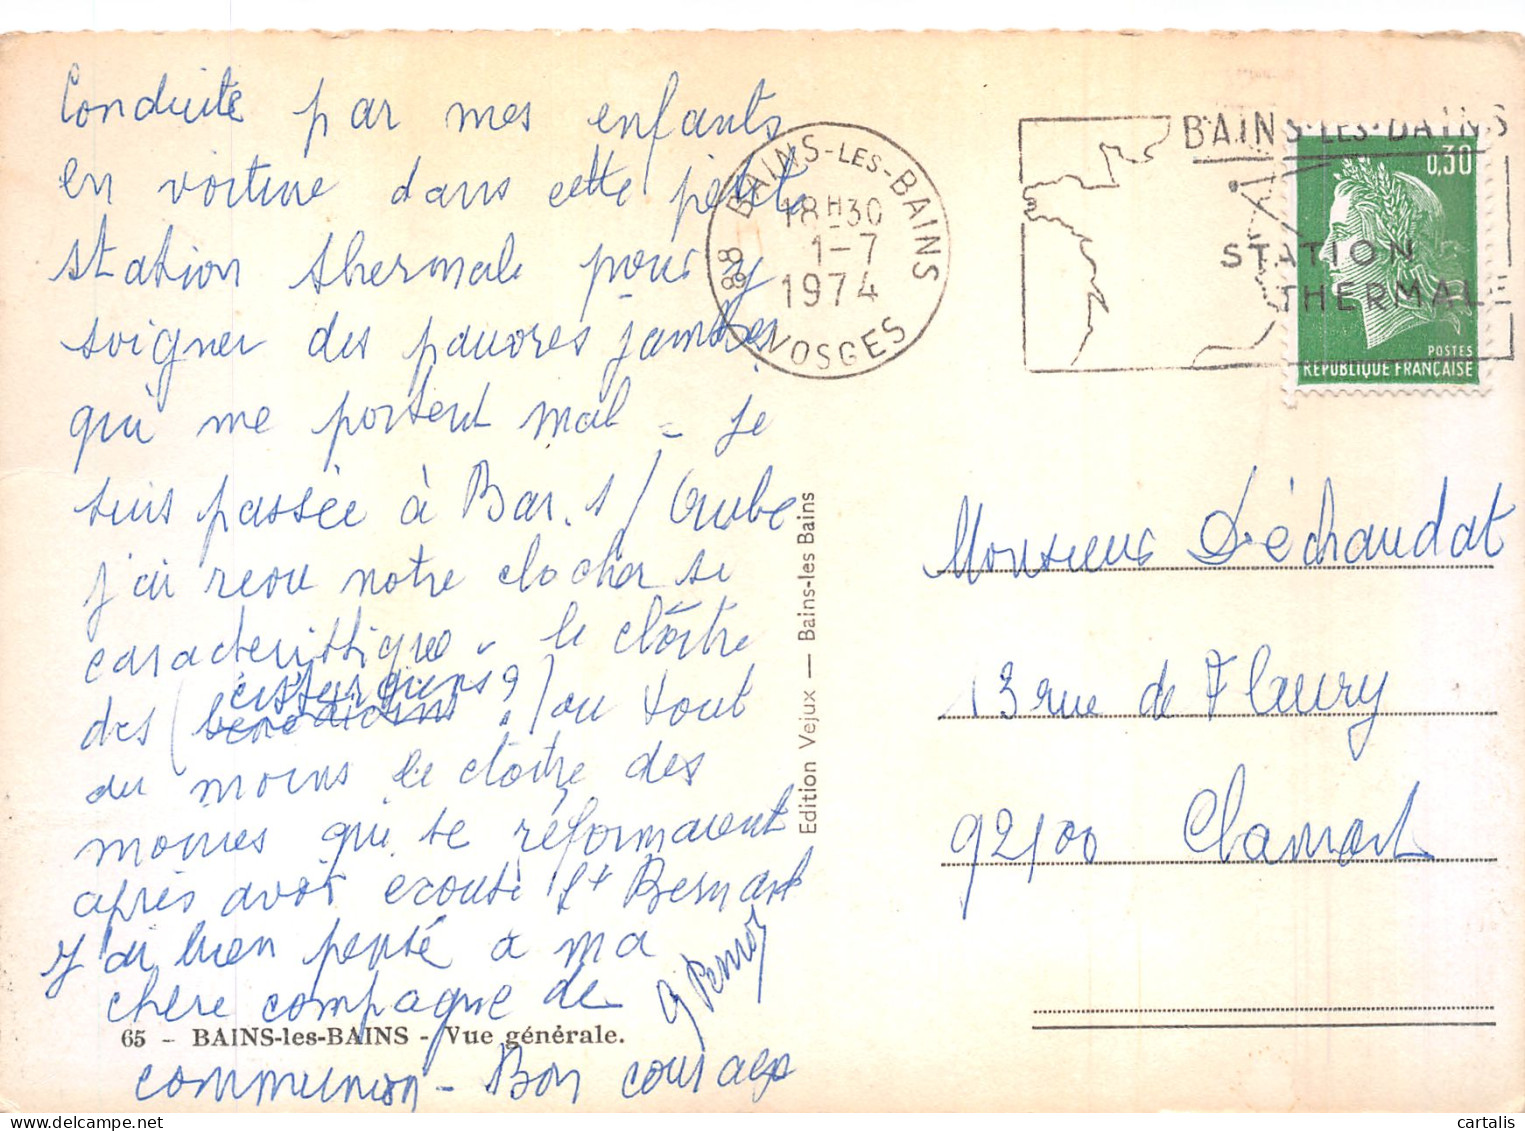 Conduite par mes enfants
en voiture dans cette petite
station thermale pour y
soigner des pauvres jambes
qui me portent mal - je
suis passée à Bar. s/Aube
j'ai revu notre clocher si
caractéristique - le cloître
des (bénédictins cisterciens ? ?) ou tout
du moins le cloître des
moines qui se réformaient
après avoir écouté St Bernard
J'ai bien pensé à ma
chère compagne de
65 - BAINS-les-BAINS - Vue générale.
communion - Bon courage
Edition Vejux — Bains-les Bains
88 BAINS-LES-BAINS
18H30
1-7
1974
VOSGES
BAINS-LES-BAINS
STATION
THERMALE
0,30
POSTES
REPUBLIQUE FRANÇAISE
Monsieur Déchaudat
13 rue de Fleury
92100 Clamart
cartalis